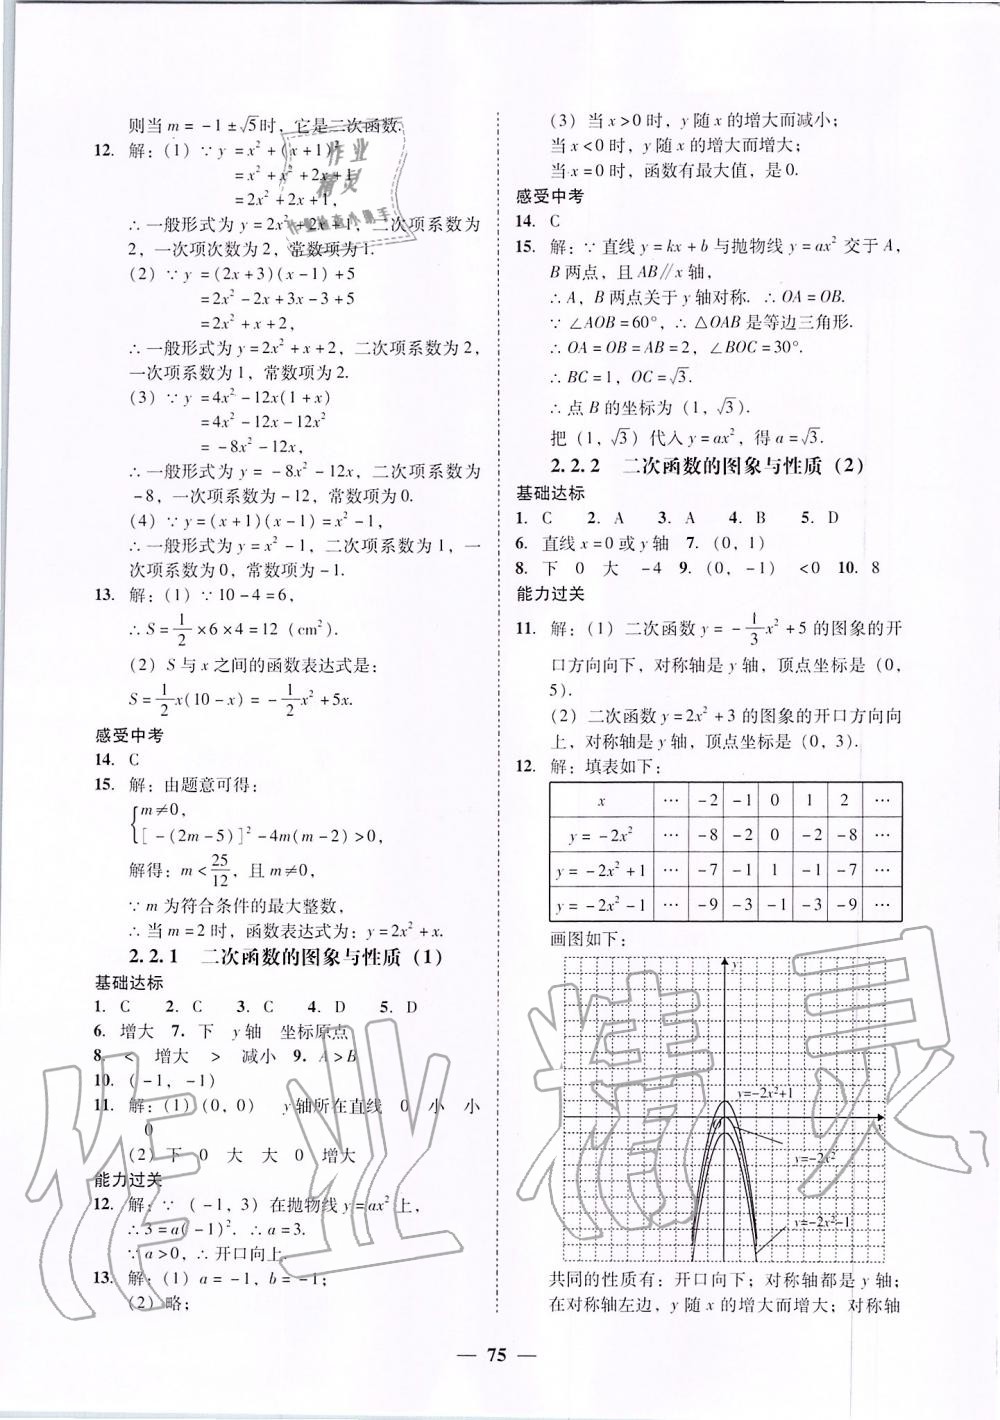 则当 m = -1±√5时，它是二次函数.
12. 解：(1) ∵ y = x² + (x+1)²
= x² + x² + 2x + 1
= 2x² + 2x + 1，
∴ 一般形式为 y = 2x² + 2x + 1，二次项系数为
2，一次项次数为 2，常数项为 1.
(2) ∵ y = (2x+3)(x-1)+5
= 2x² - 2x + 3x - 3 + 5
= 2x² + x + 2，
∴ 一般形式为 y = 2x² + x + 2，二次项系数为 2，
一次项系数为 1，常数项为 2.
(3) ∵ y = 4x² - 12x(1+x)
= 4x² - 12x - 12x²
= -8x² - 12x，
∴ 一般形式为 y = -8x² - 12x，二次项系数为
-8，一次项系数为 -12，常数项为 0.
(4) ∵ y = (x+1)(x-1) = x² - 1，
∴ 一般形式为 y = x² - 1，二次项系数为 1，一
次项系数为 0，常数项为 -1.
13. 解：(1) ∵ 10 - 4 = 6，
∴ S = 1/2 × 6 × 4 = 12 (cm²).
(2) S 与 x 之间的函数表达式是：
S = 1/2 x(10 - x) = -1/2 x² + 5x.
感受中考
14. C
15. 解：由题意可得：
{ m≠0，
[-(2m-5)]² - 4m(m-2) > 0，
解得：m < 25/12，且 m≠0，
∵ m 为符合条件的最大整数，
∴ 当 m = 2 时，函数表达式为：y = 2x² + x.
2.2.1 二次函数的图象与性质（1）
基础达标
1. C 2. C 3. C 4. D 5. D
6. 增大 7. 下 y 轴 坐标原点
8. < 增大 > 减小 9. A > B
10. (-1, -1)
11. 解：(1) (0, 0) y 轴所在直线 0 小 小
0
(2) 下 0 大 大 0 增大
能力过关
12. 解：∵ (-1, 3) 在抛物线 y = ax² 上，
∴ 3 = a(-1)². ∴ a = 3.
∵ a > 0，∴ 开口向上.
13. 解：(1) a = -1，b = -1；
(2) 略；
(3) 当 x > 0 时，y 随 x 的增大而减小；
当 x < 0 时，y 随 x 的增大而增大；
当 x = 0 时，函数有最大值，是 0.
感受中考
14. C
15. 解：∵ 直线 y = kx + b 与抛物线 y = ax² 交于 A，
B 两点，且 AB∥x 轴，
∴ A，B 两点关于 y 轴对称. ∴ OA = OB.
∵ ∠AOB = 60°，∴ △OAB 是等边三角形.
∴ OA = OB = AB = 2，∠BOC = 30°.
∴ BC = 1，OC = √3.
∴ 点 B 的坐标为 (1, √3).
把 (1, √3) 代入 y = ax²，得 a = √3.
2.2.2 二次函数的图象与性质（2）
基础达标
1. C 2. A 3. A 4. B 5. D
6. 直线 x = 0 或 y 轴 7. (0, 1)
8. 下 0 大 -4 9. (0, -1) <0 10. 8
能力过关
11. 解：(1) 二次函数 y = -1/3 x² + 5 的图象的开
口方向向下，对称轴是 y 轴，顶点坐标是 (0,
5).
(2) 二次函数 y = 2x² + 3 的图象的开口方向向
上，对称轴是 y 轴，顶点坐标是 (0, 3).
12. 解：填表如下：
x … -2 -1 0 1 2 …
y = -2x² … -8 -2 0 -2 -8 …
y = -2x² + 1 … -7 -1 1 -1 -7 …
y = -2x² - 1 … -9 -3 -1 -3 -9 …
画图如下：
y
y=-2x²+1
x
y=-2x²
y=-2x²-1
共同的性质有：开口向下；对称轴都是 y 轴；
在对称轴左边，y 随 x 的增大而增大；对称轴
— 75 —
作业精灵
作业
精灵